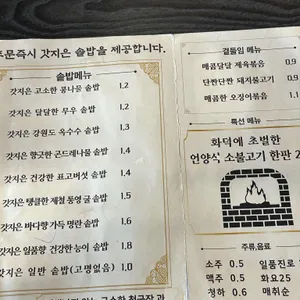 주문즉시 갓지은 솥밥을 제공합니다.
솥밥메뉴
갓지은 고소한 콩나물 솥밥 1.2
갓지은 달달한 무우 솥밥 1.2
갓지은 강원도 옥수수 솥밥 1.3
갓지은 향긋한 곤드레나물 솥밥 1.4
갓지은 건강한 표고버섯 솥밥 1.4
갓지은 탱클한 제철 통영 굴 솥밥 1.5
갓지은 바다향 가득 명란 솥밥 1.6
갓지은 일품향 건강한 능이 솥밥 1.8
갓지은 일반 솥밥(고명없음) 1.0
곁들임 메뉴
매콤달달 제육볶음 0.9
단짠단짠 돼지불고기 0.9
매콤한 오징어볶음 1.1
특선 메뉴
화덕에 초벌한
언양식 소불고기 한판 2
주류,음료
소주 0.5 일품진로
맥주 0.5 화요25
청하 0.6 매취순